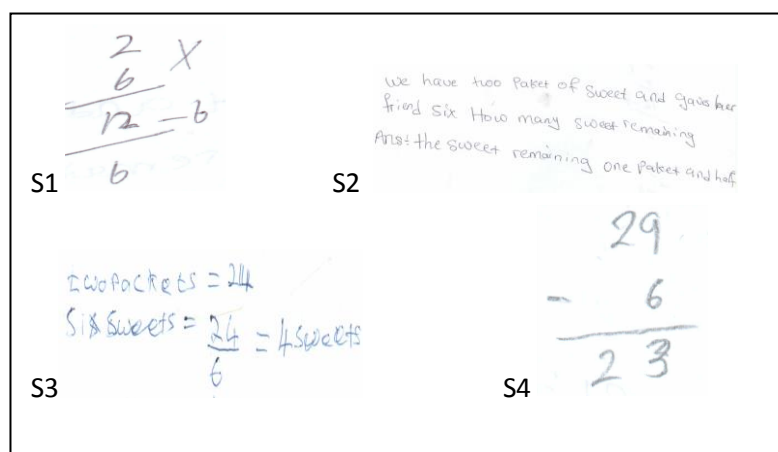 2
6 X
12 - 6
6
S1
we have two Paket of Sweet and gave her
friend Six How many sweet remaining
Ans: the sweet remaining one Paket and half
S2
Two Packets = 24
Six Sweets = 24/6 = 4 sweets
S3
29
- 6
23
S4